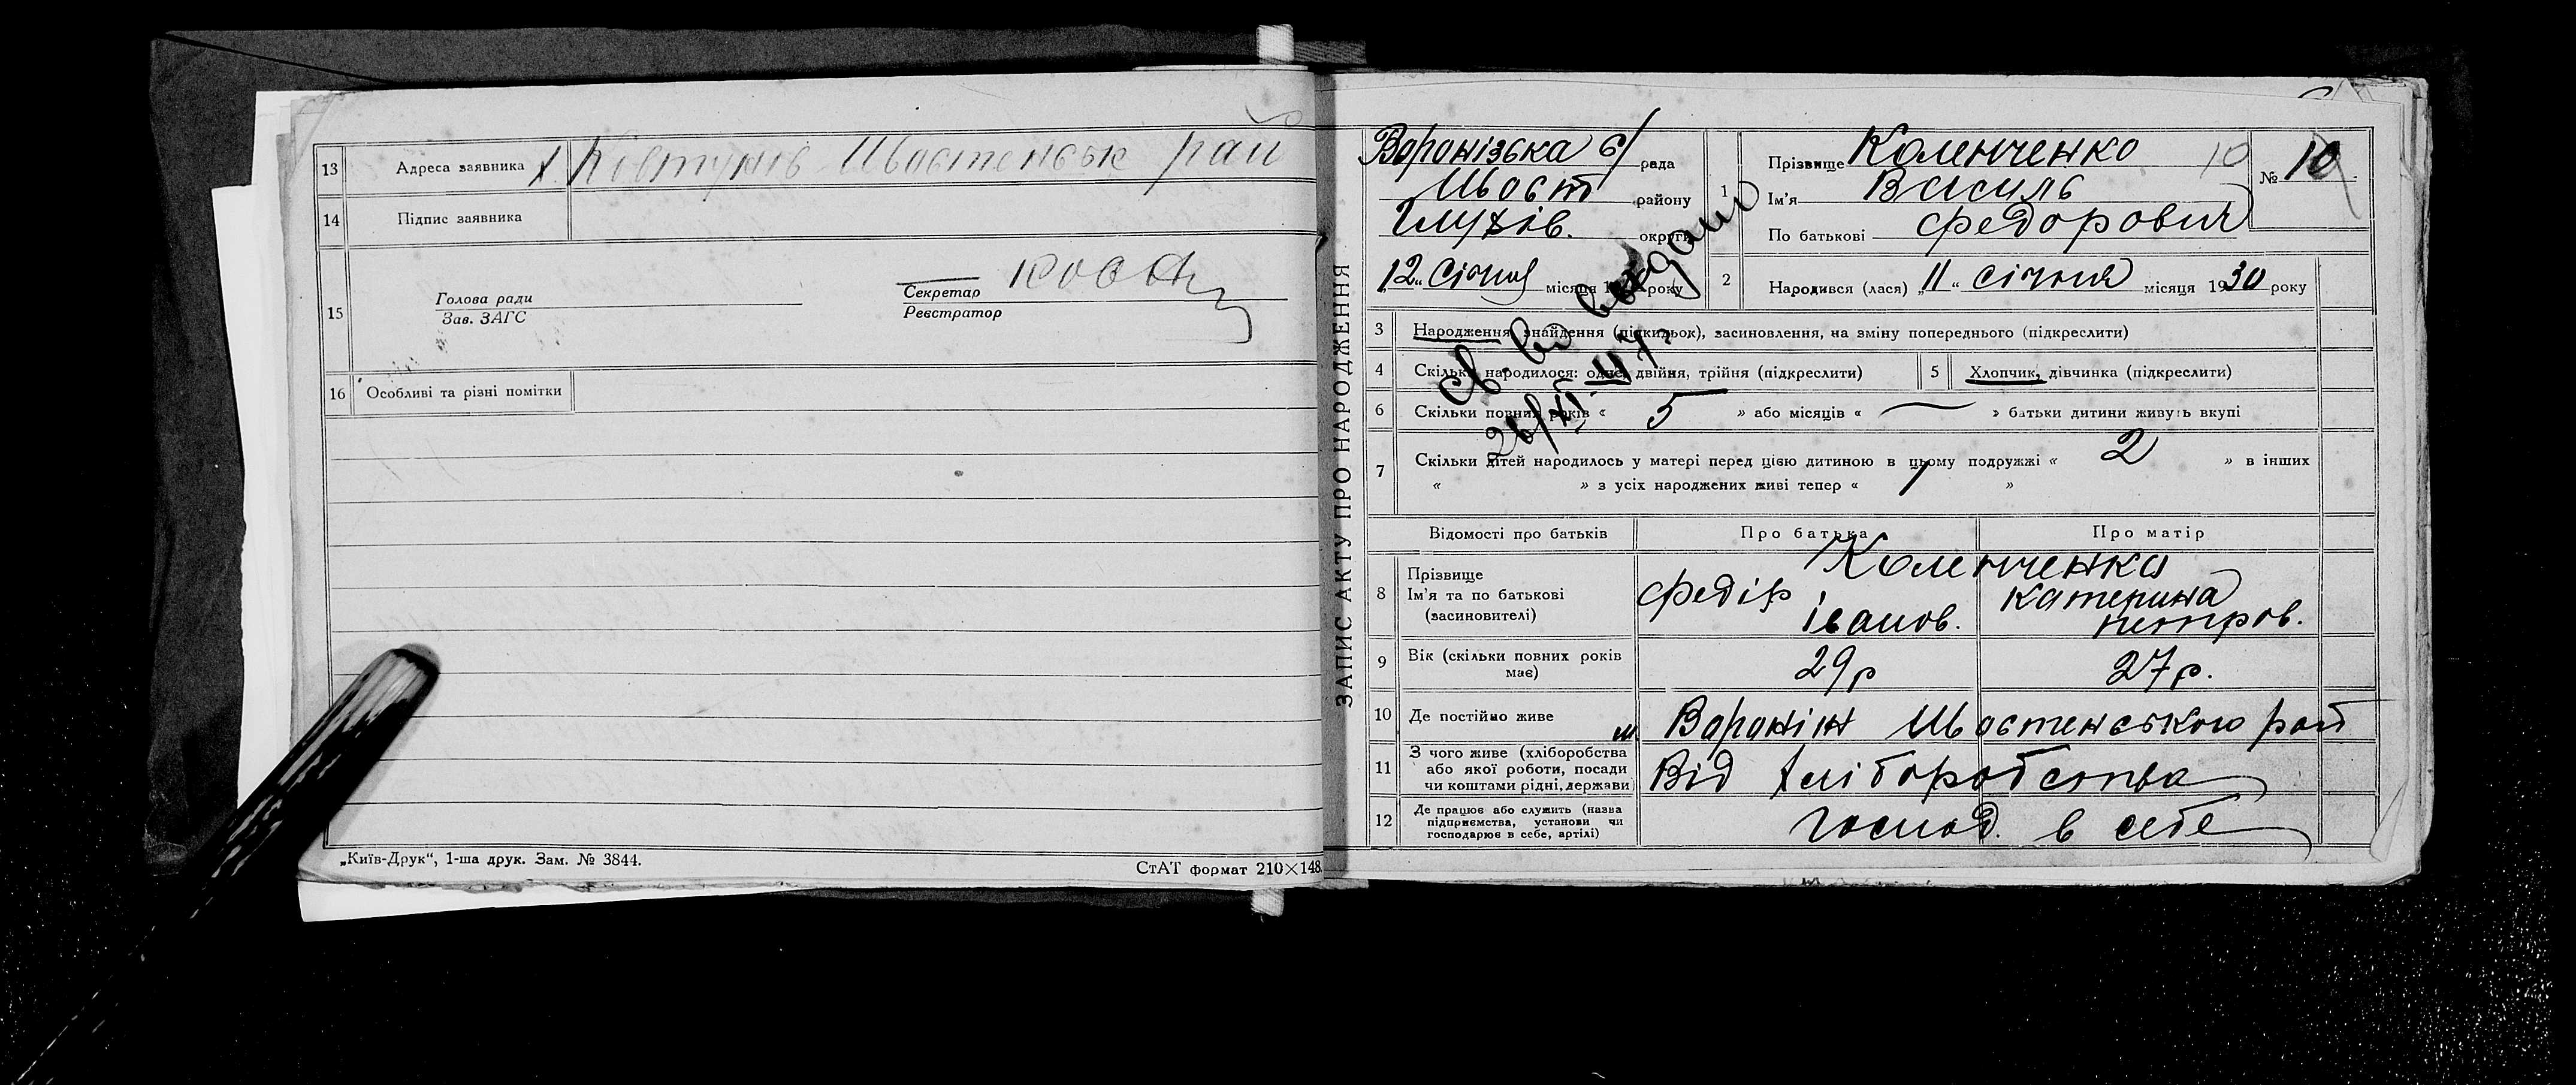 13 Адреса заявника х. Ковтунів Шостенськ рай
14 Підпис заявника
15 Голова ради
Зав. ЗАГС
Секретар
Реєстратор
16 Особливі та різні помітки
„Київ-Друк“, 1-ша друк. Зам. № 3844.
СтАТ формат 210×148.
ЗАПИС АКТУ ПРО НАРОДЖЕННЯ
Воронізька с/ рада
Шост району
Глухів. округи
„12„ Січня місяця 19 року
1 Прізвище Коленченко 10
Ім'я Василь
По батькові Федорович
№ 10
2 Народився (лася) „11“ січня місяця 1930 року
Св. во выдано
26/XI-47г
3 Народження, знайдення (підкидьок), засиновлення, на зміну попереднього (підкреслити)
4 Скільки народилося: одне, двійня, трійня (підкреслити)
5 Хлопчик, дівчинка (підкреслити)
6 Скільки повних років « 5 » або місяців « — » батьки дитини живуть вкупі
7 Скільки дітей народилось у матері перед цією дитиною в цьому подружжі « 2 » в інших
« » з усіх народжених живі тепер « 1 »
Відомості про батьків Про батька Про матір
8 Прізвище
Ім'я та по батькові
(засиновителі)
Коленченки
Федір Іванов.
Катерина Петров.
9 Вік (скільки повних років має) 29р 27р.
10 Де постійно живе м. Вороніж Шостенського рай
11 З чого живе (хліборобства
або якої роботи, посади
чи коштами рідні, держави)
Від хліборобства
12 Де працює або служить (назва
підприємства, установи чи
господарює в себе, артілі)
господ. в себе